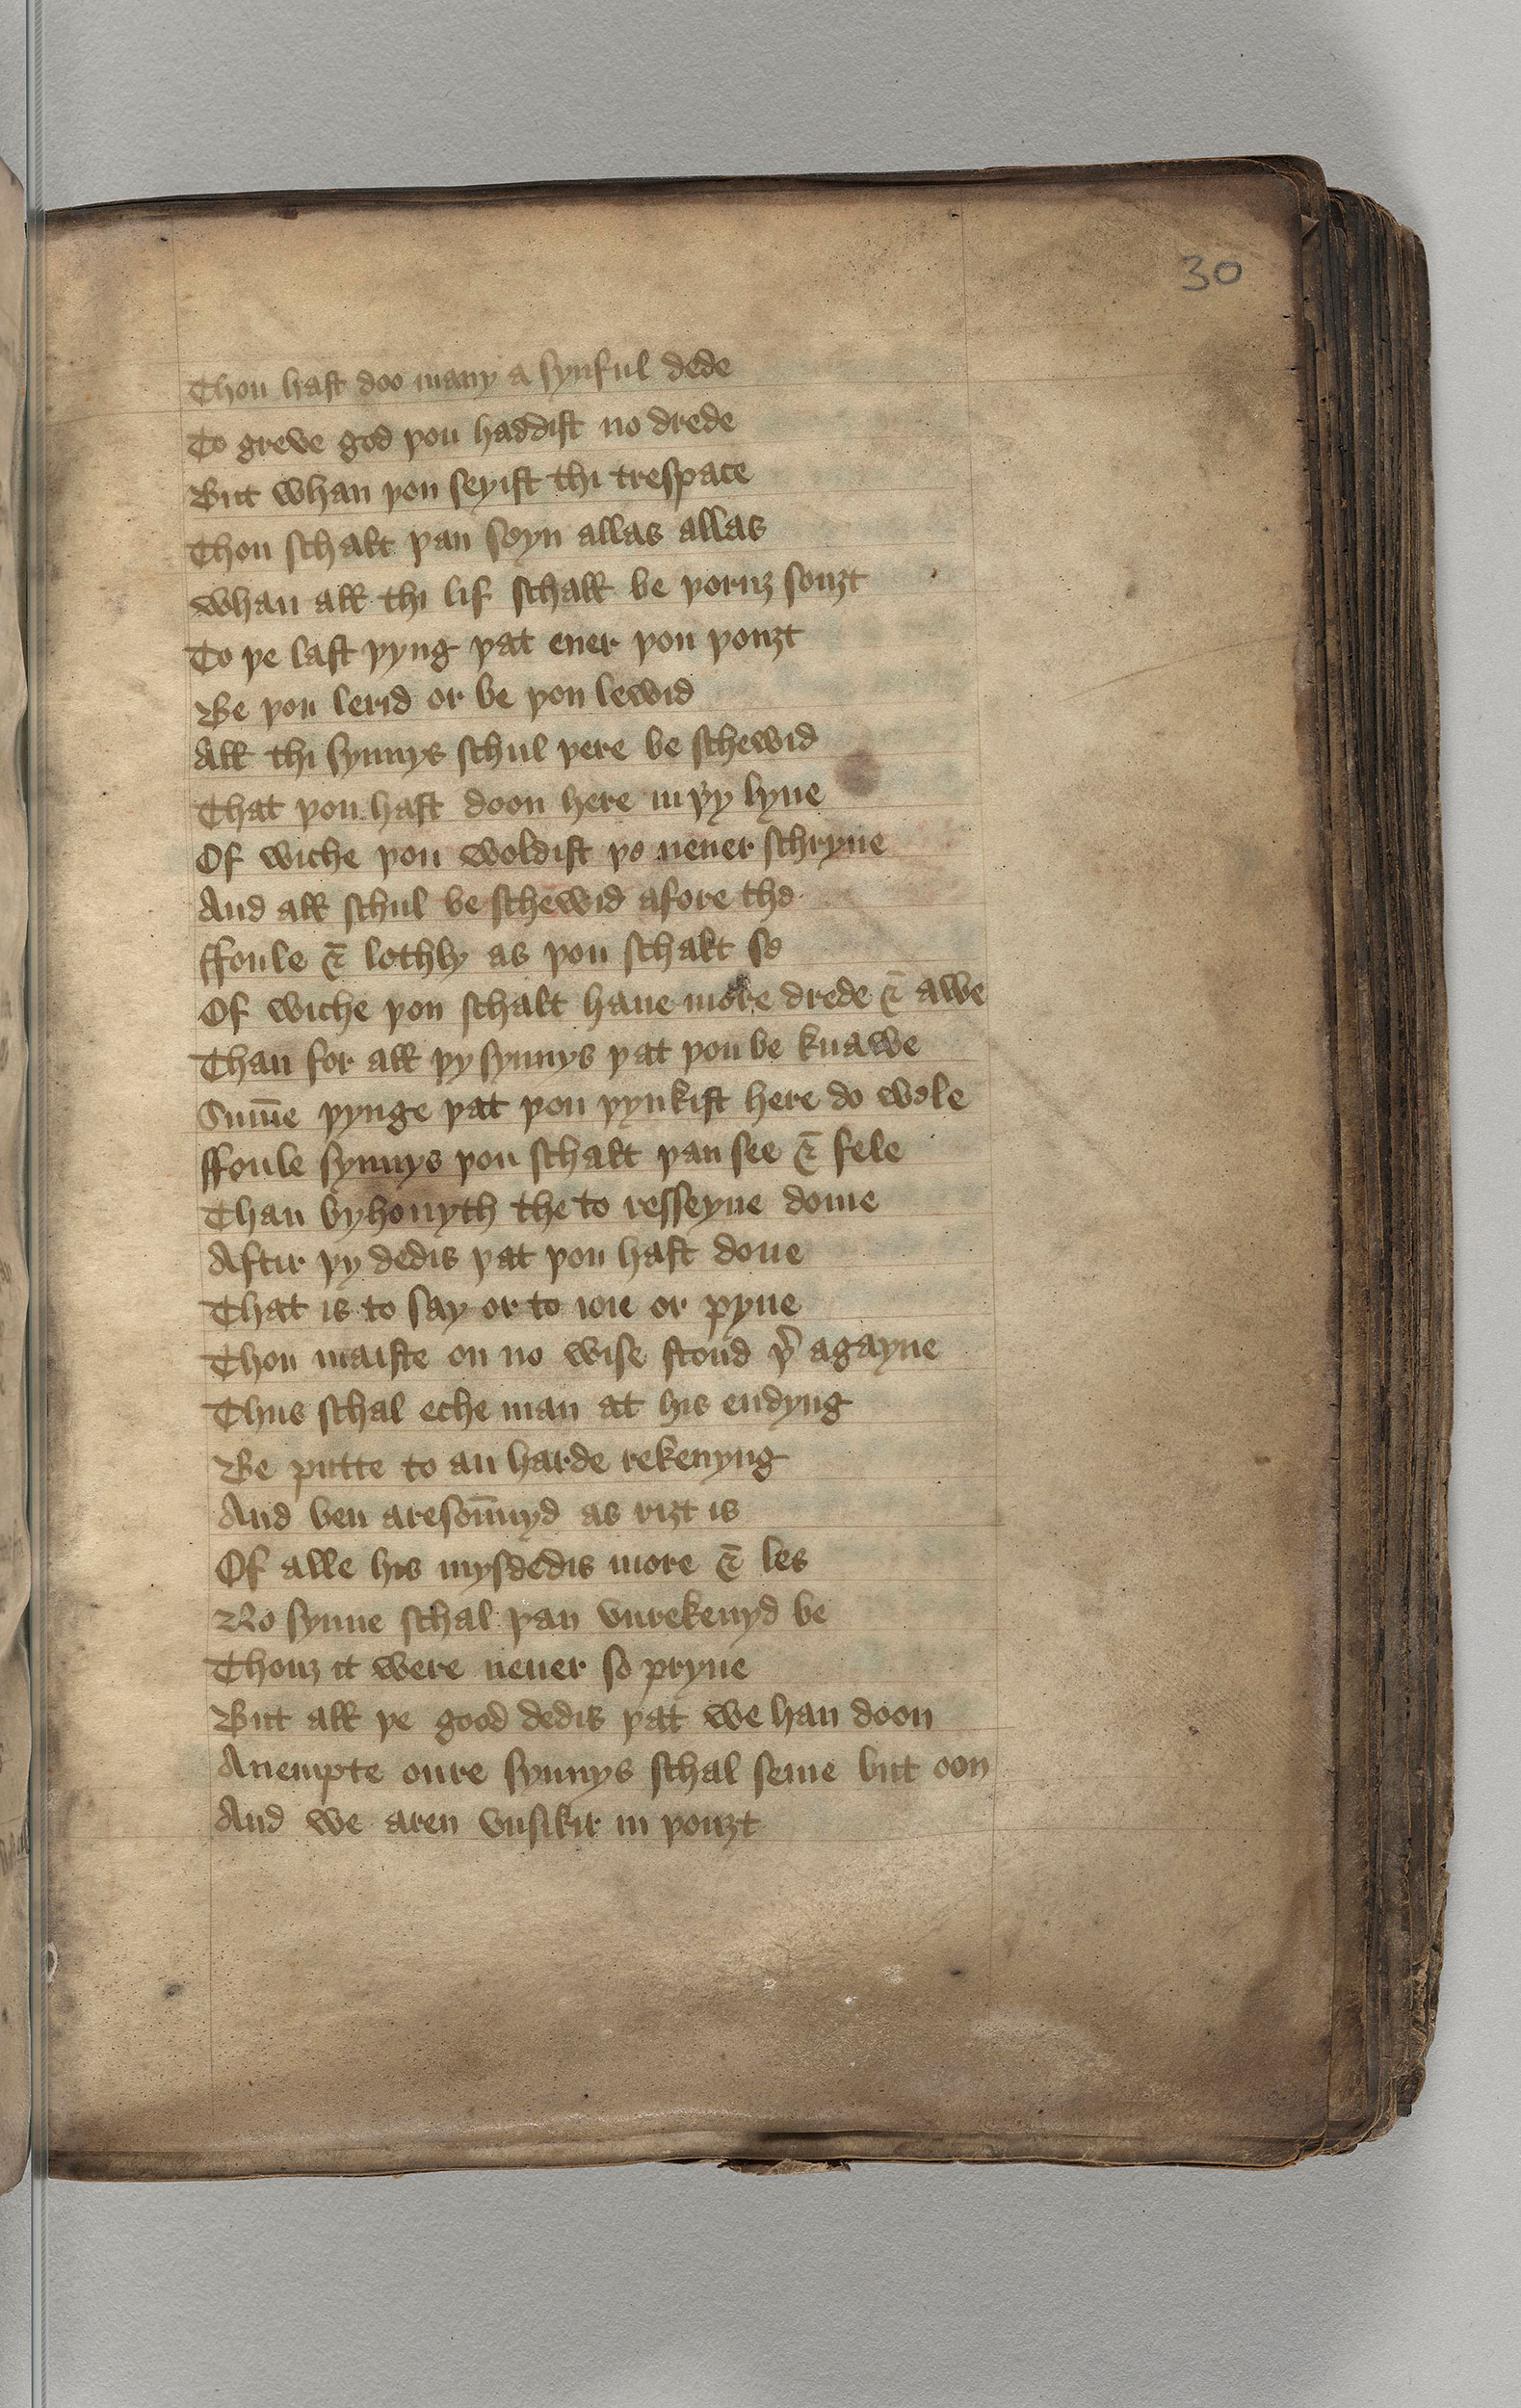 30
Thou hast doo many a synful dede
To greve god þou haddist no drede
But whan þou seyist thi trespace
Thou schalt þan seyn allas allas
Whan all thi lif schall be þoruȝ souȝt
To þe last þyng þat euer þou þouȝt
Be þou lerid or be þou lewid
All thi synnys schul þere be schewid
That þou hast doon here in þy lyue
Of wiche þou woldist þe neuer schryue
And all schul be schewid afore the
ffoule & lothly as þou schalt se
Of wiche þou schalt haue more drede & awe
Than for all þy synnys þat þou be knawe
Sum̄e þynge þat þou þynkist here do wele
ffoule synnys þou schalt þan see & fele
Than byhouyth the to resseyue dome
Aftir þy dedis þat þou hast done
That is to say or to ioie or pyne
Thou maiste on no wise stond þ̉ agayne
Thus schal eche man at his endyng
Be putte to an harde rekenyng
And ben aresōnnyd as riȝt is
Of alle his mysdedis more & les
No synne schal þan vnrekenyd be
Thouȝ it were neuer so pryue
But all þe good dedis þat we han doon
Anempte oure synnys schal seme but oon
And we aren vnsikir in þouȝt